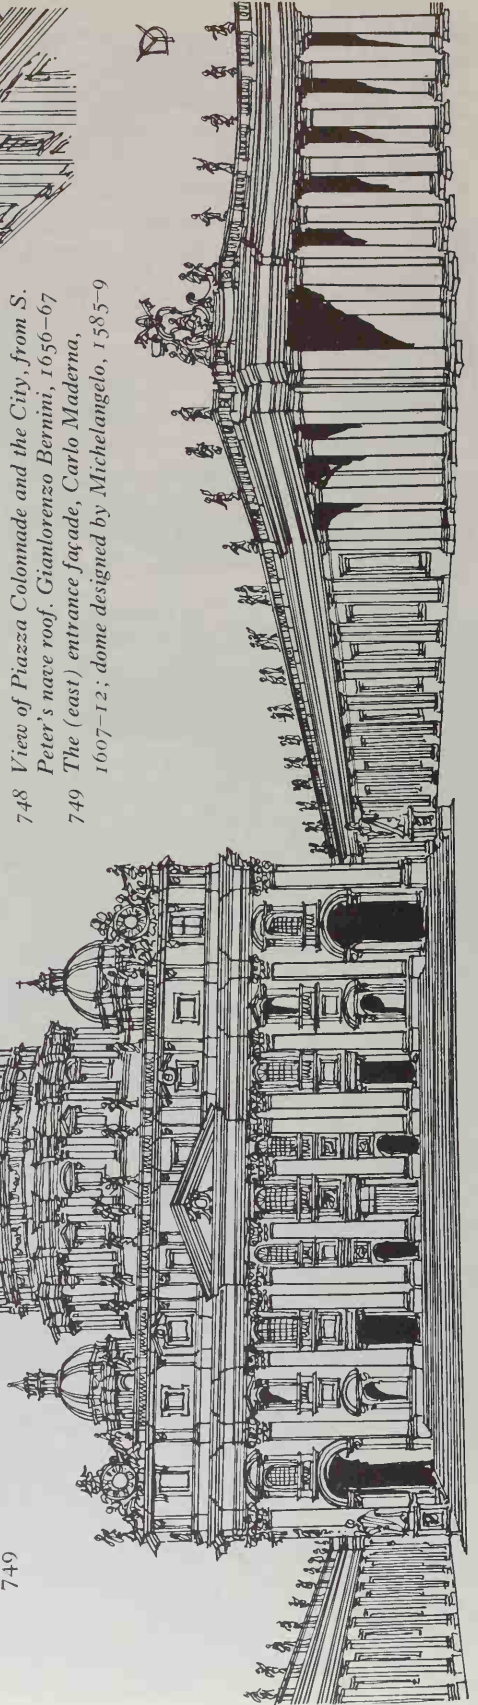 748 View of Piazza Colonnade and the City, from S.
Peter's nave roof. Gianlorenzo Bernini, 1656–67
749 The (east) entrance façade, Carlo Maderna,
1607–12; dome designed by Michelangelo, 1585–9
749